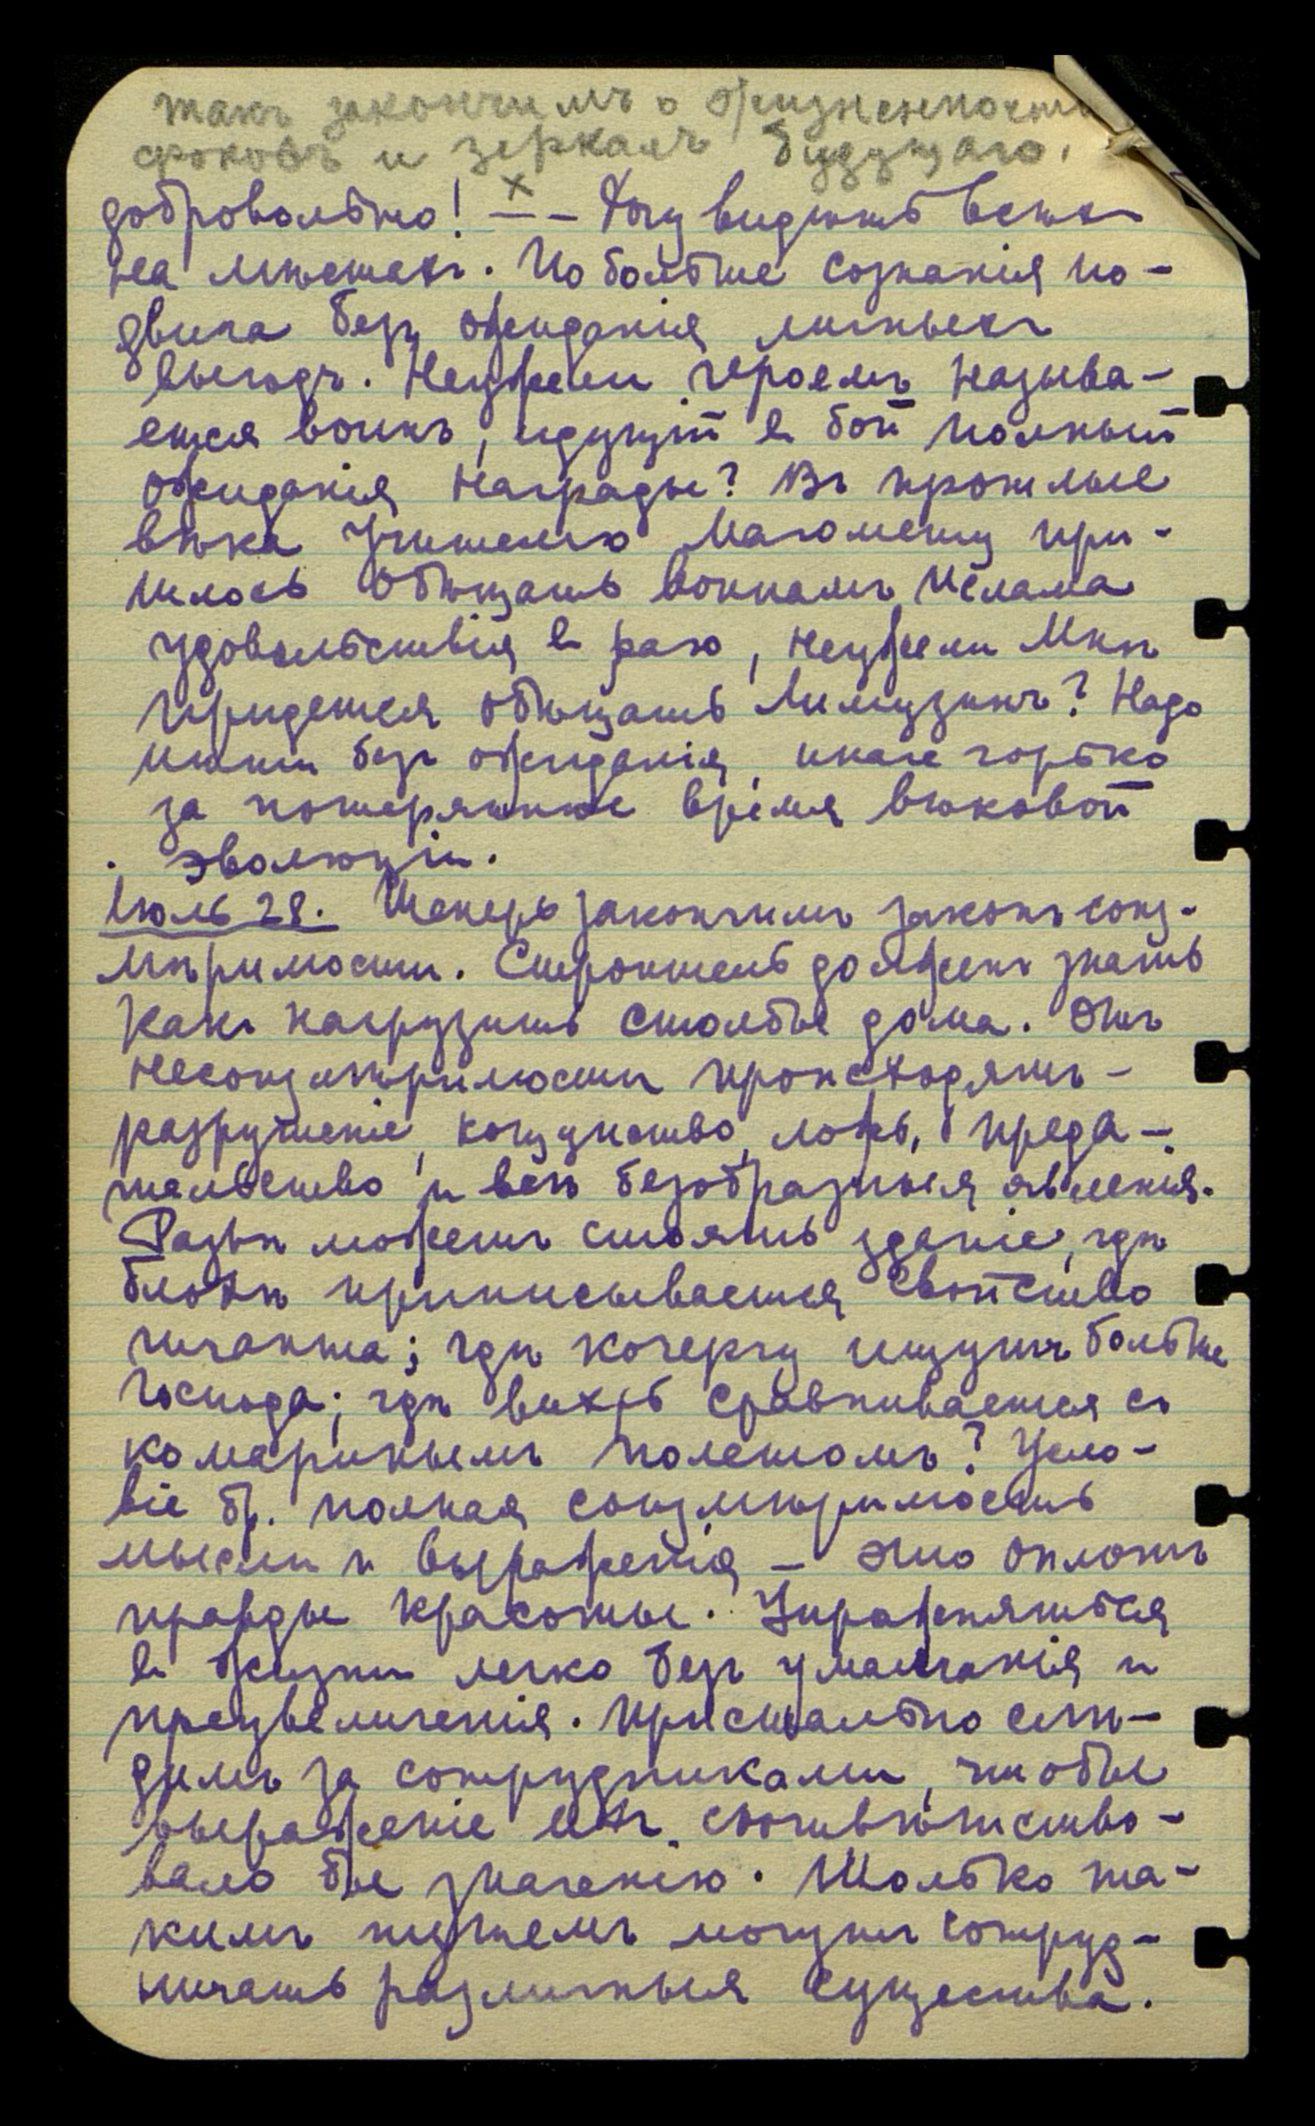 такъ закончимъ о жизненности
фоковъ и зеркалъ будущаго.
добровольно! —х— Хочу видѣть всѣхъ
на мѣстахъ. Побольше сознанія по-
двига безъ ожиданія личныхъ
выгодъ. Неужели героемъ называ-
ется воинъ, идущій в бой полный
ожиданія награды? Въ прошлые
вѣка Учителю Магомету при-
шлось обѣщать воинамъ Ислама
удовольствія в раю, неужели Мнѣ
придется обѣщать Лимузинъ? Надо
итти безъ ожиданія, иначе горько
за потерянное время вѣковой
эволюціи.
Іюль 28. Теперь закончимъ законъ соиз-
мѣримости. Строитель долженъ знать
какъ нагрузить столбы дома. Отъ
несоизмѣримости происходятъ –
разрушеніе, кощунство, ложь, преда-
тельство и всѣ безобразныя явленія.
Развѣ можетъ стоять зданіе, гдѣ
блохѣ приписывается свойство
гиганта; гдѣ кочергу ищутъ больше
Господа; гдѣ вихрь сравнивается съ
комаринымъ полетомъ? Усло-
віе бр. полная соизмѣримость
мысли и выраженія – это оплотъ
правды красоты. Упражняться
в жизни легко безъ умалчанія и
преувеличенія. Пристально слѣ-
димъ за сотрудниками, чтобы
выраженіе ихъ соотвѣтство-
вало бы значенію. Только та-
кимъ путемъ могутъ сотруд-
ничать различныя существа.